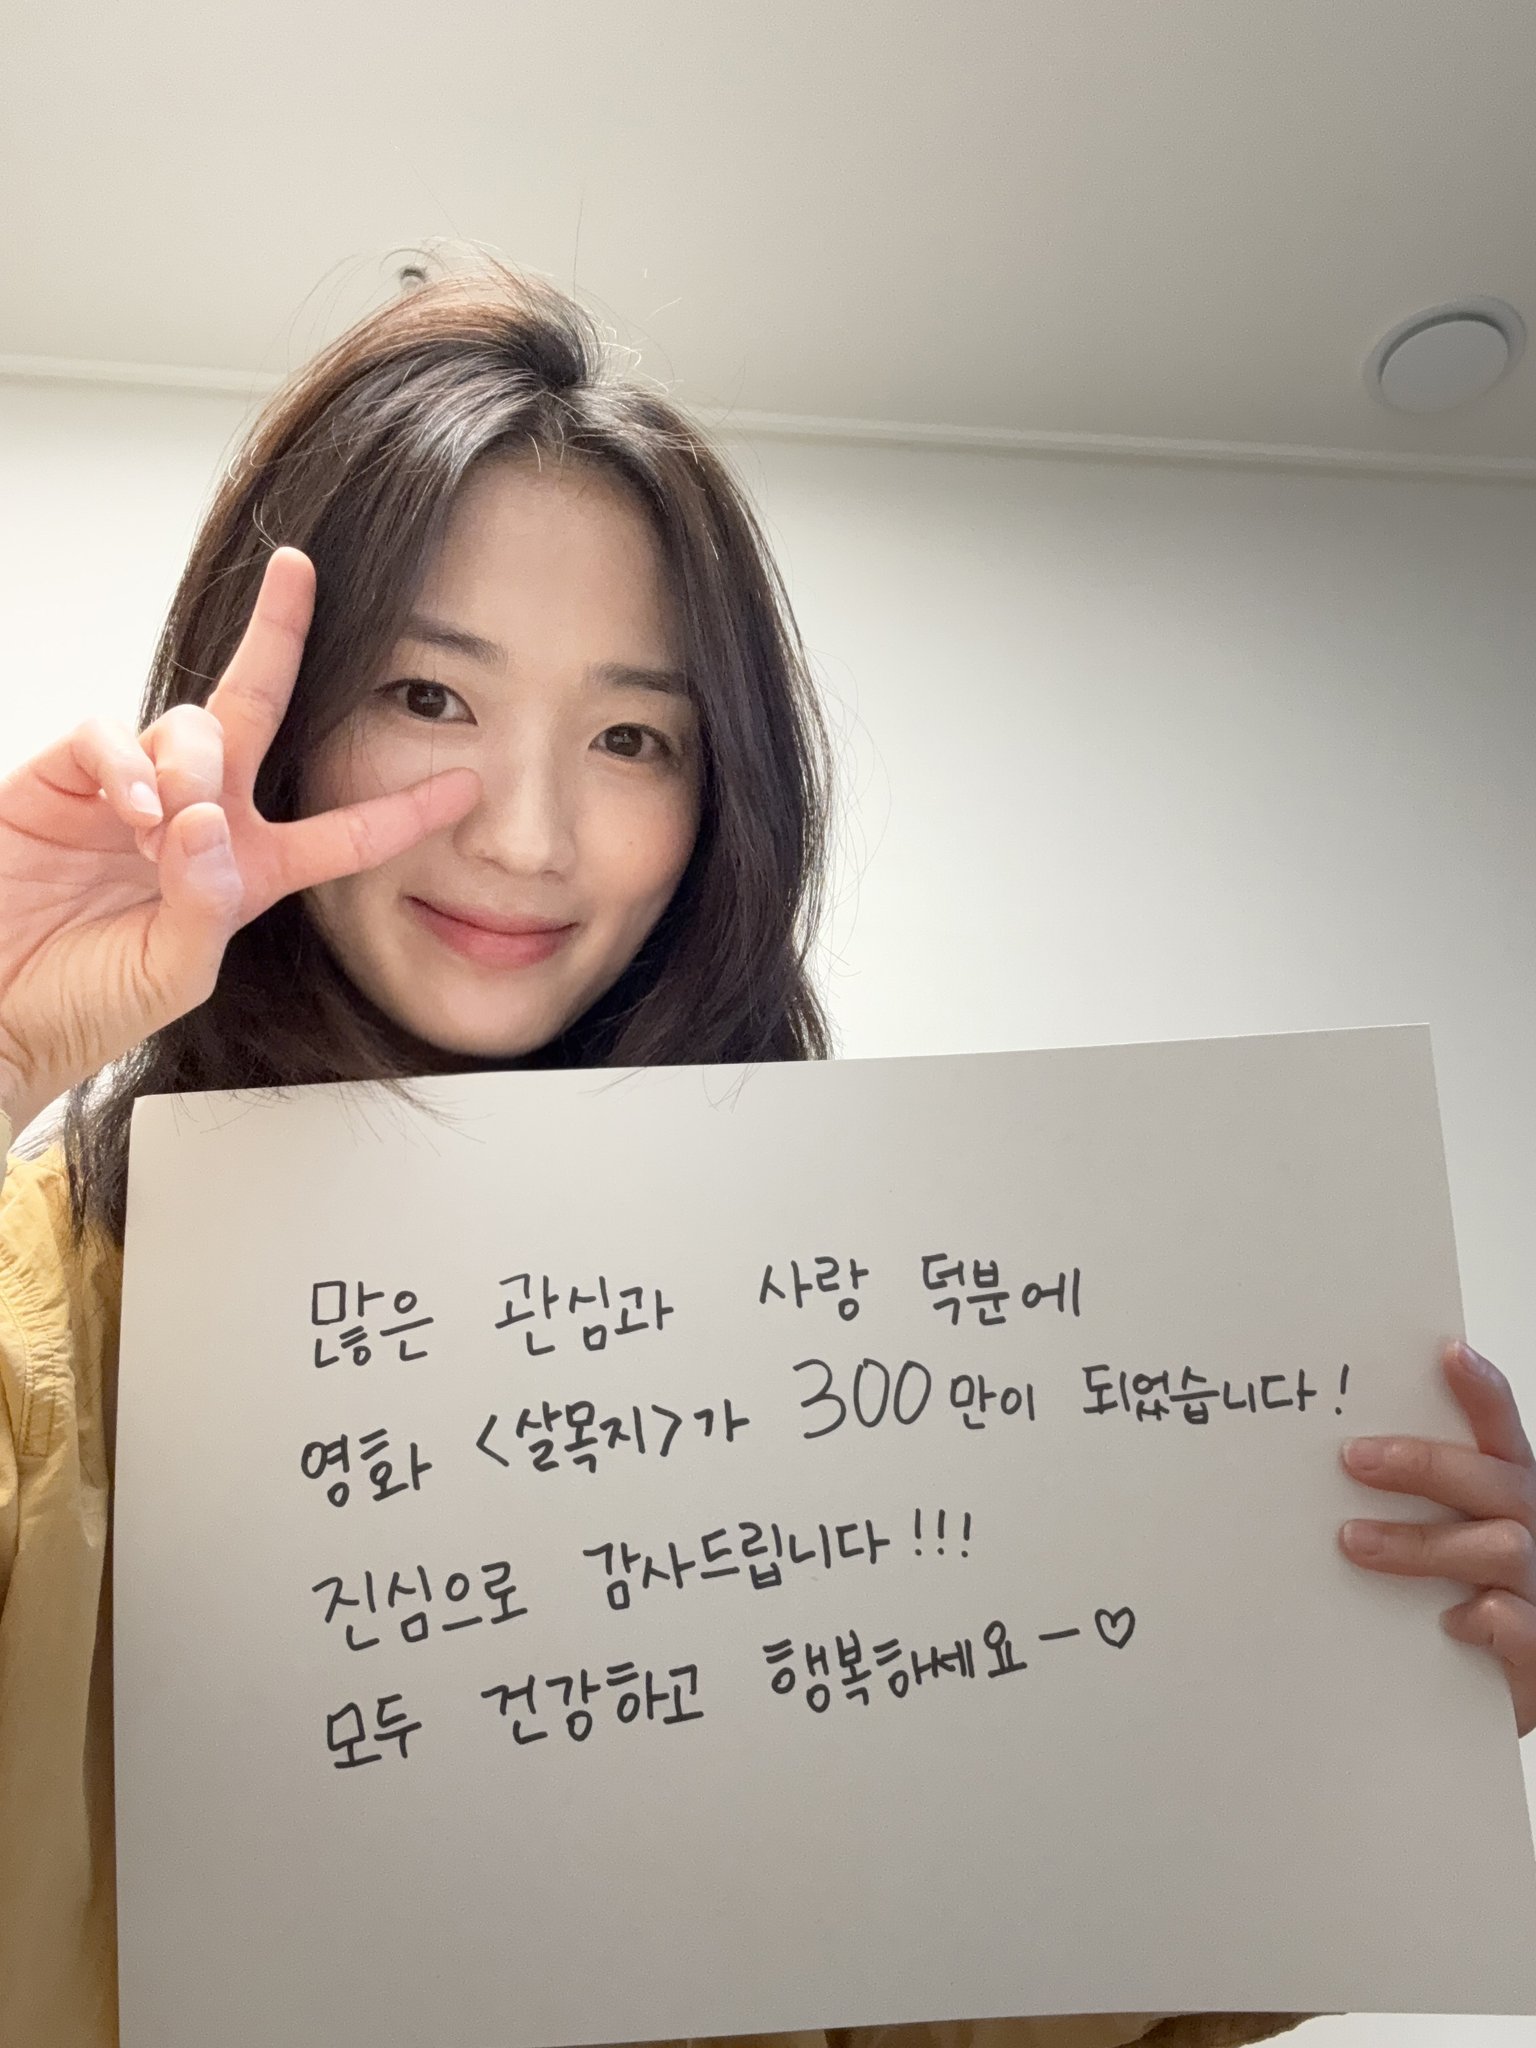 많은 관심과 사랑 덕분에
영화 <살목지>가 300만이 되었습니다!
진심으로 감사드립니다!!!
모두 건강하고 행복하세요-♡